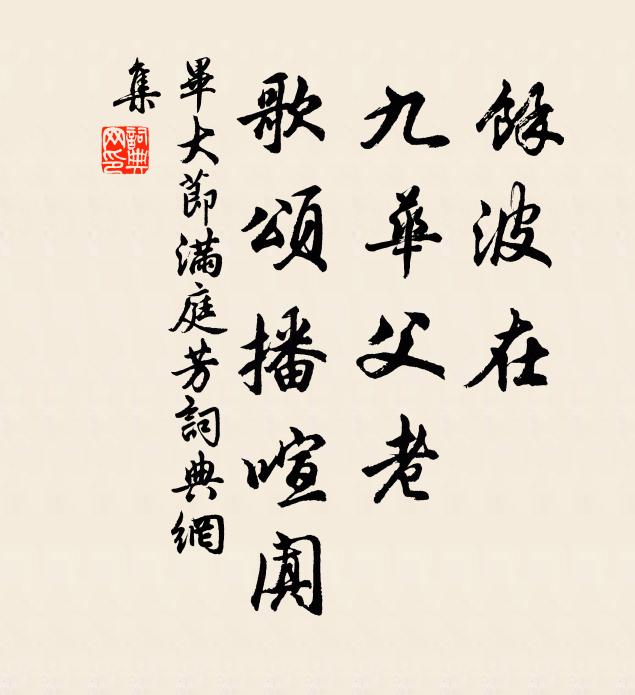 餘波在
九華父老
歌頌播喧闐
畢大節滿庭芳詞典網
集
詞典
网印